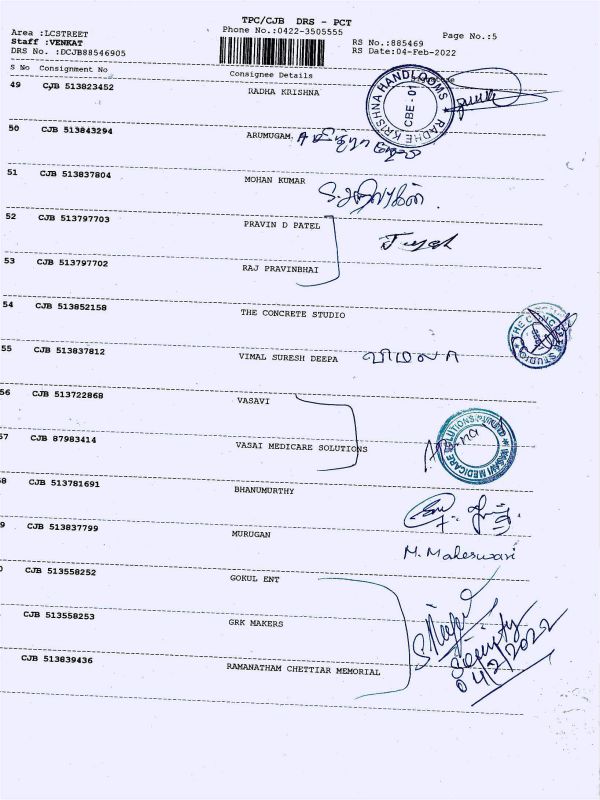 TPC/CJB DRS - PCT
Area :LCSTREET
Phone No.:0422-3505555
Page No.:5
Staff :VENKAT
RS No.:885469
DRS No. :DCJB88546905
RS Date:04-Feb-2022
S No Consignment No
Consignee Details
49 CJB 513823452 RADHA KRISHNA
RADHE KRISHNA HANDLOOMS
CBE - 01
50 CJB 513843294 ARUMUGAM
51 CJB 513837804 MOHAN KUMAR
52 CJB 513797703 PRAVIN D PATEL
53 CJB 513797702 RAJ PRAVINBHAI
54 CJB 513852158 THE CONCRETE STUDIO
THE CONCRETE STUDIO
55 CJB 513837812 VIMAL SURESH DEEPA
56 CJB 513722868 VASAVI
57 CJB 87983414 VASAI MEDICARE SOLUTIONS
VASAVI MEDICARE SOLUTIONS
8 CJB 513781691 BHANUMURTHY
9 CJB 513837799 MURUGAN
M. Maheswari
0 CJB 513558252 GOKUL ENT
CJB 513558253 GRK MAKERS
CJB 513839436 RAMANATHAM CHETTIAR MEMORIAL
Security
04/2/2022